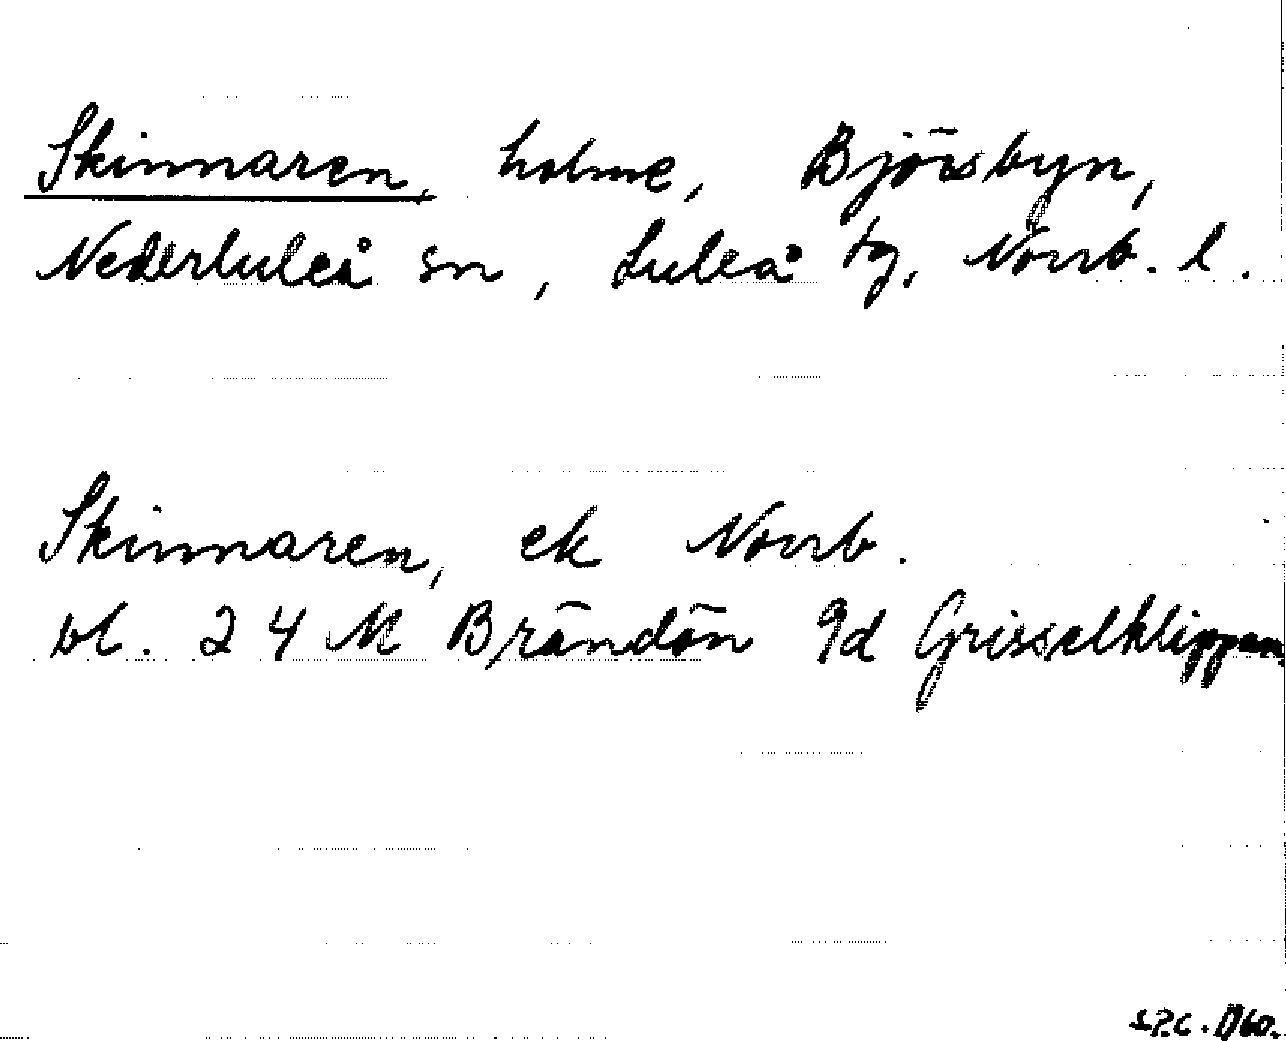 Skinnaren, holme, Björsbyn,
Nederluleå sn, Luleå tg, Norrb. l.
Skinnaren, ek Norrb.
bl. 24 M Brändön 9d Grisselklippan